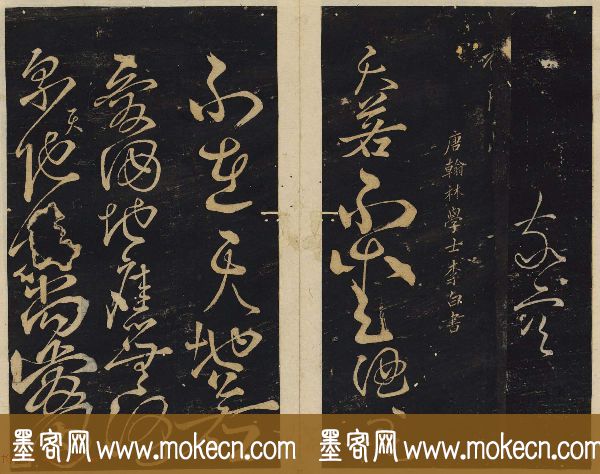 唐翰林學士李白書
天若不愛酒
不在天地若
愛酒地應無酒
泉天地既
墨客网 www.mokecn.com
墨客网 www.mokecn.com